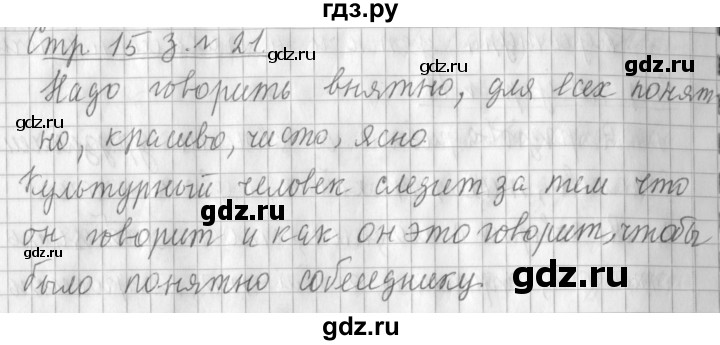 гдз.ру
Стр 15 з. н 21.
gdz.ru gdz.ru gdz.ru
Надо говорить внятно, для всех понят
но, красиво, чисто, ясно.
gdz.ru gdz.ru
Культурный человек следит за тем что
gdz.ru gdz.ru
он говорит и как он это говорит, чтобы
было понятно собеседнику.
gdz.ru gdz.ru
gdz.ru